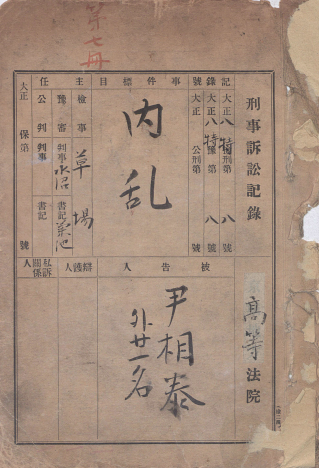 第七冊
刑事訴訟記錄
高等法院
記錄號
大正八特刑第八號
大正八特豫第八號
大正 公刑第 號
事件標目
内乱
被告人
尹相泰
外廿一名
主任
檢事 草場
豫審 判事 水沼 書記 菊池
公判 判事 書記
辯護人
私訴關係人
大正 保第 號